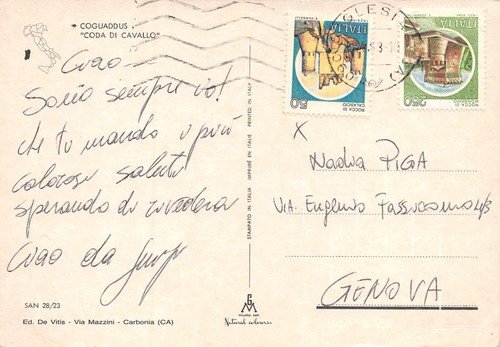 COGUADDUS -
"CODA DI CAVALLO"
Ciao -
Sono sempre io!
che ti mando i più
calorosi saluti
sperando di rivederci
Ciao da
SAN 28/23
Ed. De Vitis - Via Mazzini - Carbonia (CA)
STAMPATO IN ITALIA IMPRIMÉ EN ITALIE PRINTED IN ITALY
GM
MILANO
Natural colorcor
ITALIA
50
ROCCA DI
CALASCIO
ITALIA
250
ROCCA DI
X
Nadia PIGA
VIA. Eugenio
GENOVA